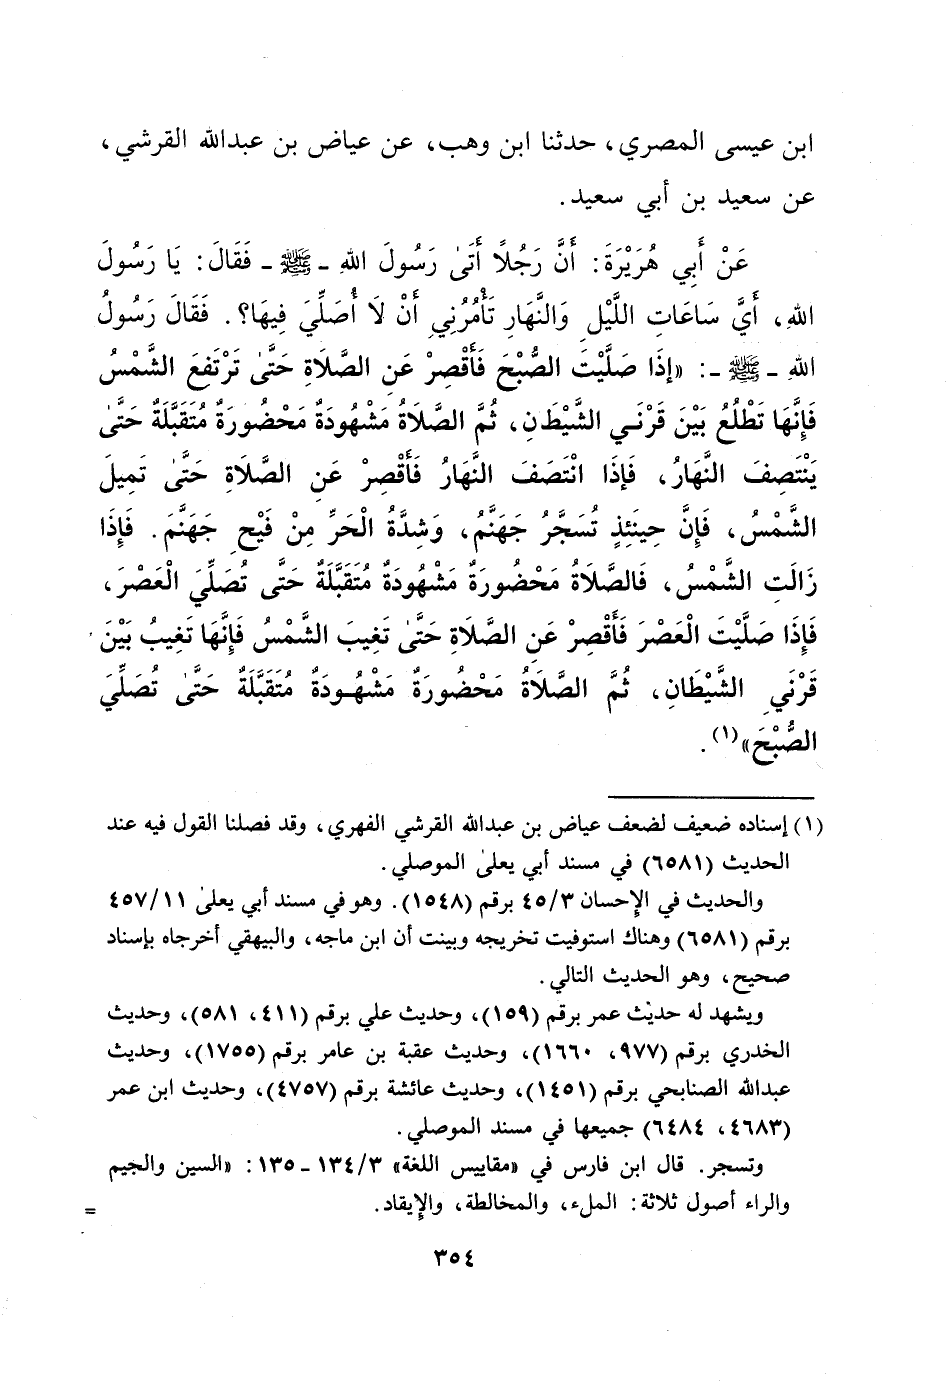 ابن عيسى المصري، حدثنا ابن وهب، عن عياض بن عبدالله القرشي،
عن سعيد بن أبي سعيد.
عَنْ أَبِي هُرَيْرَةَ: أَنَّ رَجُلاً أَتَىٰ رَسُولَ اللهِ ـ ﷺ ـ فَقَالَ: يَا رَسُولَ
اللهِ، أَيَّ سَاعَاتِ اللَّيْلِ وَالنَّهَارِ تَأْمُرُنِي أَنْ لَا أُصَلِّيَ فِيهَا؟. فَقَالَ رَسُولُ
اللهِ ـ ﷺ ـ: «إِذَا صَلَّيْتَ الصُّبْحَ فَأَقْصِرْ عَنِ الصَّلَاةِ حَتَّىٰ تَرْتَفِعَ الشَّمْسُ
فَإِنَّهَا تَطْلُعُ بَيْنَ قَرْنَيِ الشَّيْطَنِ، ثُمَّ الصَّلَاةُ مَشْهُودَةٌ مَحْضُورَةٌ مُتَقَبَّلَةٌ حَتَّىٰ
يَنْتَصِفَ النَّهَارُ، فَإِذَا انْتَصَفَ النَّهَارُ فَأَقْصِرْ عَنِ الصَّلَاةِ حَتَّىٰ تَمِيلَ
الشَّمْسُ، فَإِنَّ حِينَئِذٍ تُسَجَّرُ جَهَنَّمُ، وَشِدَّةُ الْحَرِّ مِنْ فَيْحِ جَهَنَّمَ. فَإِذَا
زَالَتِ الشَّمْسُ، فَالصَّلَاةُ مَحْضُورَةٌ مَشْهُودَةٌ مُتَقَبَّلَةٌ حَتَّىٰ تُصَلِّيَ الْعَصْرَ،
فَإِذَا صَلَّيْتَ الْعَصْرَ فَأَقْصِرْ عَنِ الصَّلَاةِ حَتَّىٰ تَغِيبَ الشَّمْسُ فَإِنَّهَا تَغِيبُ بَيْنَ
قَرْنَيِ الشَّيْطَانِ، ثُمَّ الصَّلَاةُ مَحْضُورَةٌ مَشْهُودَةٌ مُتَقَبَّلَةٌ حَتَّىٰ تُصَلِّيَ
الصُّبْحَ»(١).
(١) إسناده ضعيف لضعف عياض بن عبدالله القرشي الفهري، وقد فصلنا القول فيه عند
الحديث (٦٥٨١) في مسند أبي يعلىٰ الموصلي.
والحديث في الإحسان ٤٥/٣ برقم (١٥٤٨). وهو في مسند أبي يعلىٰ ٤٥٧/١١
برقم (٦٥٨١) وهناك استوفيت تخريجه وبينت أن ابن ماجه، والبيهقي أخرجاه بإسناد
صحيح، وهو الحديث التالي.
ويشهد له حديث عمر برقم (١٥٩)، وحديث علي برقم (٤١١، ٥٨١)، وحديث
الخدري برقم (٩٧٧، ١٦٦٠)، وحديث عقبة بن عامر برقم (١٧٥٥)، وحديث
عبدالله الصنابحي برقم (١٤٥١)، وحديث عائشة برقم (٤٧٥٧)، وحديث ابن عمر
(٤٦٨٣، ٦٤٨٤) جميعها في مسند الموصلي.
وتسجر. قال ابن فارس في «مقاييس اللغة» ١٣٤/٣ ـ ١٣٥: «السين والجيم
والراء أصول ثلاثة: الملء، والمخالطة، والإيقاد. =
٣٥٤